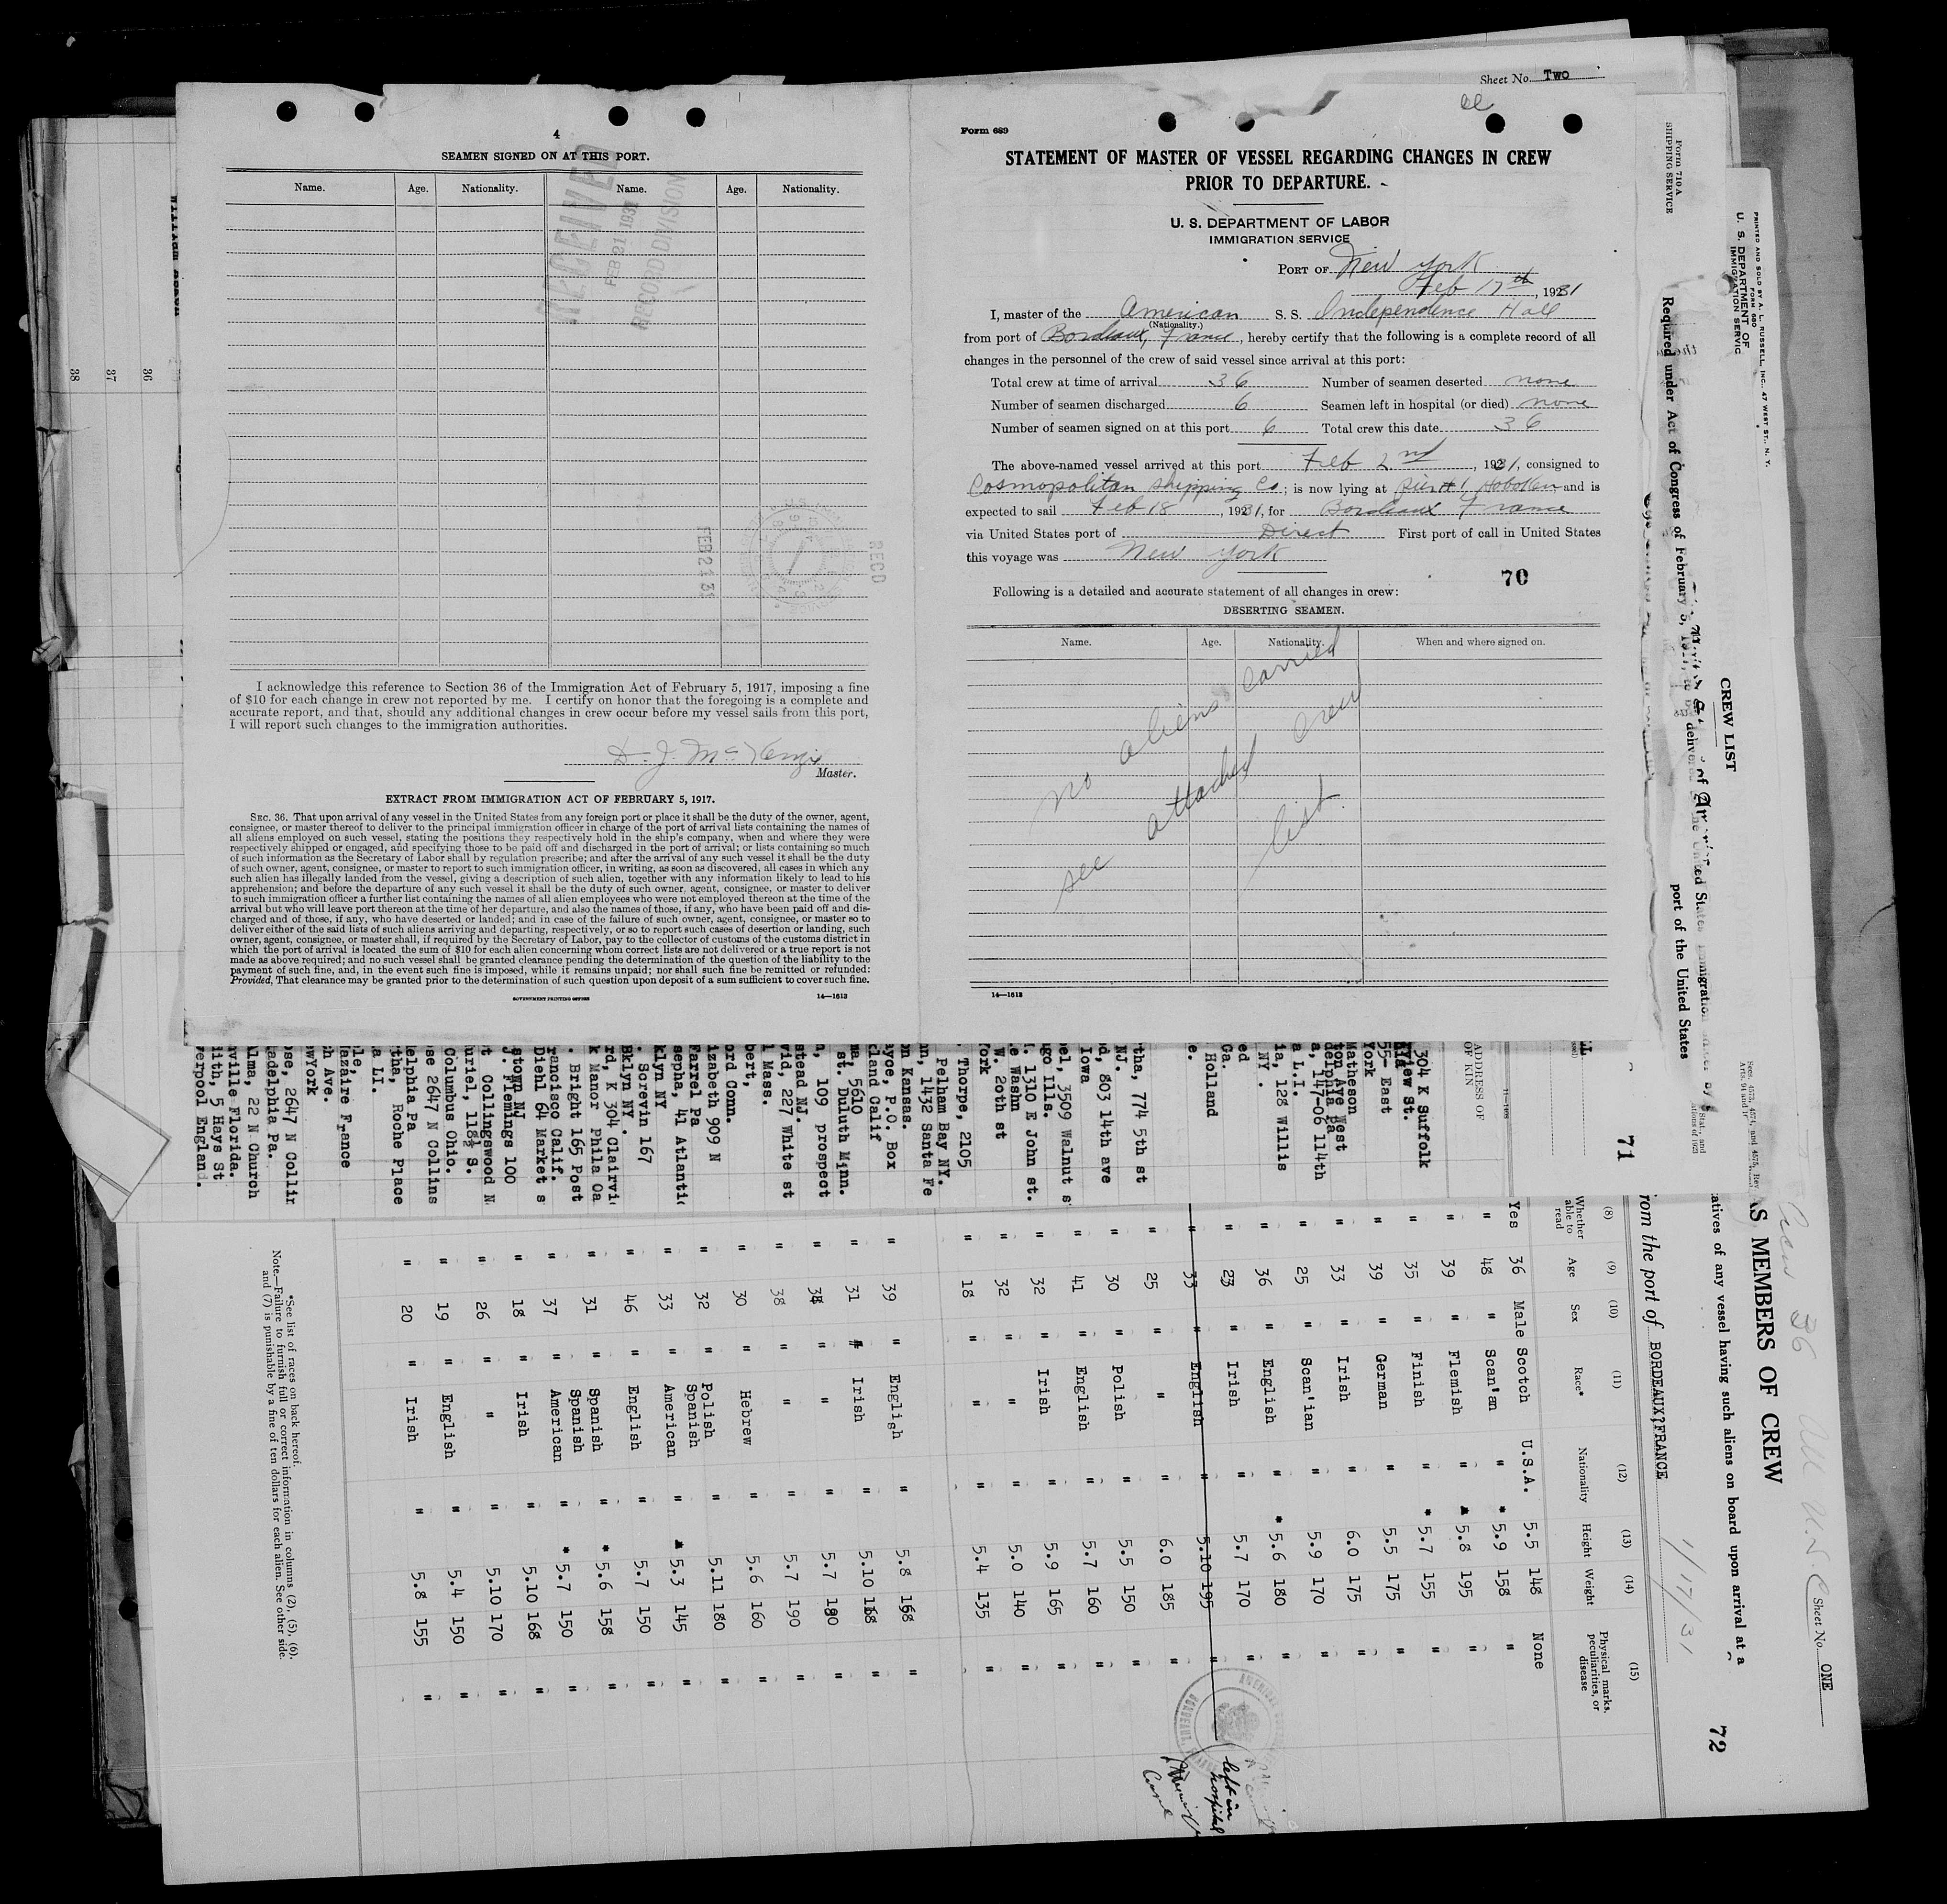 Sheet No. Two
4
SEAMEN SIGNED ON AT THIS PORT.
Name. Age. Nationality. Name. Age. Nationality.
RECEIVED
FEB 21 1931
RECORD DIVISION
FEB 24 31
RECD
I acknowledge this reference to Section 36 of the Immigration Act of February 5, 1917, imposing a fine
of $10 for each change in crew not reported by me. I certify on honor that the foregoing is a complete and
accurate report, and that, should any additional changes in crew occur before my vessel sails from this port,
I will report such changes to the immigration authorities.
D. J. McKenzie
Master.
EXTRACT FROM IMMIGRATION ACT OF FEBRUARY 5, 1917.
SEC. 36. That upon arrival of any vessel in the United States from any foreign port or place it shall be the duty of the owner, agent,
consignee, or master thereof to deliver to the principal immigration officer in charge of the port of arrival lists containing the names of
all aliens employed on such vessel, stating the positions they respectively hold in the ship's company, when and where they were
respectively shipped or engaged, and specifying those to be paid off and discharged in the port of arrival; or lists containing so much
of such information as the Secretary of Labor shall by regulation prescribe; and after the arrival of any such vessel it shall be the duty
of such owner, agent, consignee, or master to report to such immigration officer, in writing, as soon as discovered, all cases in which any
such alien has illegally landed from the vessel, giving a description of such alien, together with any information likely to lead to his
apprehension; and before the departure of any such vessel it shall be the duty of such owner, agent, consignee, or master to deliver
to such immigration officer a further list containing the names of all alien employees who were not employed thereon at the time of the
arrival but who will leave port thereon at the time of her departure, and also the names of those, if any, who have been paid off and dis-
charged and of those, if any, who have deserted or landed; and in case of the failure of such owner, agent, consignee, or master so to
deliver either of the said lists of such aliens arriving and departing, respectively, or so to report such cases of desertion or landing, such
owner, agent, consignee, or master shall, if required by the Secretary of Labor, pay to the collector of customs of the customs district in
which the port of arrival is located the sum of $10 for each alien concerning whom correct lists are not delivered or a true report is not
made as above required; and no such vessel shall be granted clearance pending the determination of the question of the liability to the
payment of such fine, and, in the event such fine is imposed, while it remains unpaid; nor shall such fine be remitted or refunded:
Provided, That clearance may be granted prior to the determination of such question upon deposit of a sum sufficient to cover such fine.
GOVERNMENT PRINTING OFFICE 14—1613
Form 689
STATEMENT OF MASTER OF VESSEL REGARDING CHANGES IN CREW
PRIOR TO DEPARTURE.
U. S. DEPARTMENT OF LABOR
IMMIGRATION SERVICE
PORT OF New York
Feb 17th, 1931
I, master of the American S. S. Independence Hall
(Nationality.)
from port of Bordeaux, France, hereby certify that the following is a complete record of all
changes in the personnel of the crew of said vessel since arrival at this port:
Total crew at time of arrival 36 Number of seamen deserted none
Number of seamen discharged 6 Seamen left in hospital (or died) none
Number of seamen signed on at this port 6 Total crew this date 36
The above-named vessel arrived at this port Feb 2nd, 1931, consigned to
Cosmopolitan Shipping Co; is now lying at Pier #1, Hoboken and is
expected to sail Feb 18, 1931, for Bordeaux France
via United States port of Direct First port of call in United States
this voyage was New York
70
Following is a detailed and accurate statement of all changes in crew:
DESERTING SEAMEN.
Name. Age. Nationality. When and where signed on.
no aliens carried
see attached crew
list
14—1613
Form 710A
SHIPPING SERVICE
Required under Act of Congress of February 5, 1917, to be delivered
port of the United States
PRINTED AND SOLD BY A. L. RUSSELL, INC., 47 WEST ST., N. Y.
FORM 680
U. S. DEPARTMENT OF
IMMIGRATION SERVIC
CREW LIST
71
ADDRESS OF
OF KIN
304 K Suffolk
view St.
55- East
York
Matheson
ton Aye West
delphia Pa
a, 147-06 114th
a L.I.
ia, 128 Willis
NY.
ed
Ga.
Holland
e.
tha, 774 5th st
NJ.
d, 803 14th ave
Iowa
el, 3509, Walnut s
go Ills.
. 1310 E John st.
e Washn
W. 20th st
ork
Thorpe, 2105
Pelham Bay NY.
n, 1432 Santa Fe
on Kansas.
ayoe, P.O. Box
land Calif
ma, 5610
st. Duluth Minn.
n, 109 prospect
stead NJ.
vid, 227 White st
l Mass.
bert,
ord Conn.
izabeth 909 N
Farrel Pa
sepha, 41 Atlantic
klyn NY
. Screvin 167
Bklyn NY.
rd, K 304 Clairvi
k Manor Phila Oa
. Bright 165 Post
rancisco Calif.
Diehl 64 Market s
stown NJ
J. Flemings 100
t Collingswood N
uriel, 118½ S.
Columbus Ohio.
se 2647 N Collins
elphia Pa
tha, Roche Place
a LI.
le,
Nazaire France
h Ave.
wYork
ose, 2647 N Collir
adelphia Pa.
lma, 22 N Church
ville Florida.
ith, 5 Hays St
verpool England.
36 37 38
Crew 36 All U.S.C
Sheet No. ONE
72
AS MEMBERS OF CREW
atives of any vessel having such aliens on board upon arrival at a
rom the port of BORDEAUX?FRANCE 1/17/31
(8) (9) (10) (11) (12) (13) (14) (15)
Whether able to read Age Sex Race* Nationality Height Weight Physical marks, peculiarities, or disease
Yes 36 Male Scotch U.S.A. 5.5 148 None
" 48 " Scan'an " * 5.9 158 "
" 39 " Flemish " * 5.8 195 "
" 35 " Finish " * 5.7 155 "
" 39 " German " 5.5 175 "
" 33 " Irish " 6.0 175 "
" 25 " Scan'ian " 5.9 170 "
" 36 " English " * 5.6 180 "
" 23 " Irish " 5.7 170 "
" 33 " English " 5.10 195 "
left in hospital
" 25 " " " 6.0 185 "
" 30 " Polish " 5.5 150 "
" 41 " English " 5.7 160 "
" 32 " Irish " 5.9 165 "
" 32 " " " 5.0 140 "
" 18 " " " 5.4 135 "
" 39 " English " 5.8 168 "
" 31 " Irish " 5.10 168 "
" 38 " " " 5.7 180 "
" 38 " " " 5.7 190 "
" 30 " Hebrew " 5.6 160 "
" 32 " Polish Spanish " 5.11 180 "
" 33 " American " * 5.3 145 "
" 46 " English " 5.7 150 "
" 31 " Spanish " * 5.6 158 "
" 37 " Spanish American " * 5.7 150 "
" 18 " Irish " 5.10 168 "
" 26 " " " 5.10 170 "
" 19 " English " 5.4 150 "
" 20 " Irish " 5.8 155 "
*See list of races on back hereof.
Note.—Failure to furnish full or correct information in columns (2), (5), (6),
and (7) is punishable by a fine of ten dollars for each alien. See other side.